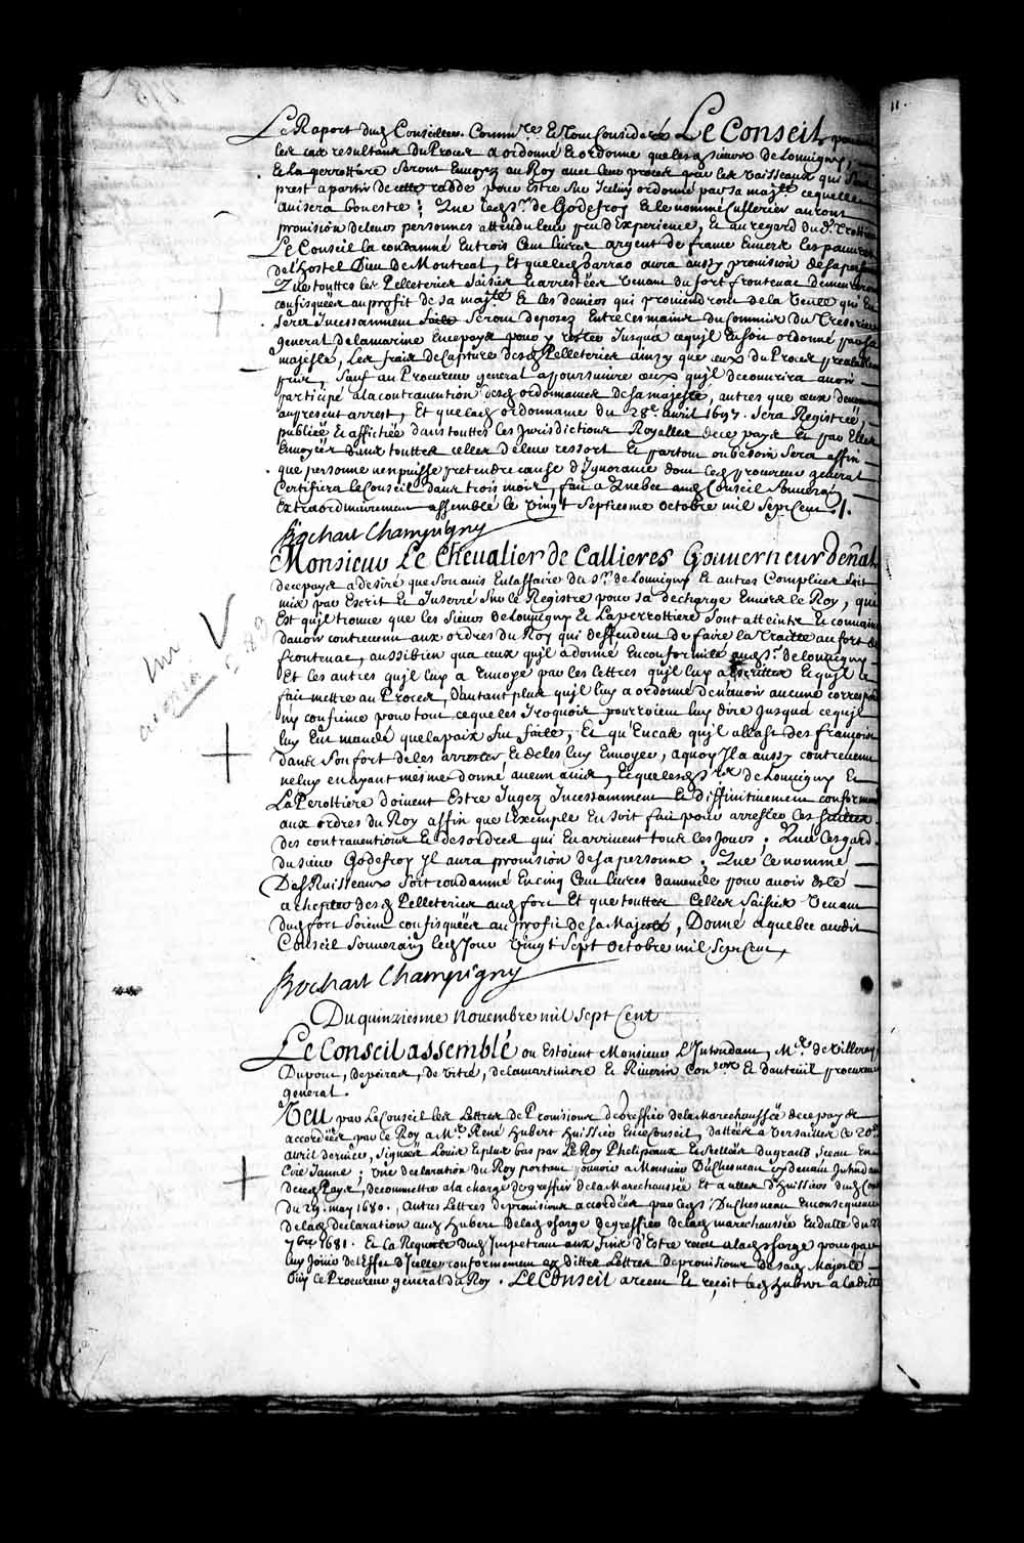 Le Raport dud Conseiller Comm.re Et Tout Consideré Le Conseil pour
les cas resultans du Proces a ordonné Et ordonne que les d sieurs de Louvigny
Et La perrottiere seront Envoyez au Roy avec leur procez par les vaisseaux qui sont
prest a partir de cette radde pour Estre sur Iceluy ordonné par sa maj.té ce quelle
avisera bon estre ; Que led s.r de Godefroy Et le nommé Cusserier auront
provision de leurs personnes attendu leur peu d'Experience, Et au regard du d.
Le Conseil la condamné En trois Cent livres argent de france Envers les pauvres
de l'hostel Dieu de Montreal, Et que led Sarrao aura aussy provision de sa personne
Que touttes les Pelleteries saisies Et arrestées Venant du fort frontenac demeureront
confisquées au profit de sa maj.té Et les deniers qui proviendront de la Vente qui En
sera Incessamment faite seront deposez Entre les mains du Commis du Tresorier
general de la marine En ce pays pour y rester Jusqu'a ce qu'il En soit ordonné par sa
majesté, Les frais de Capture desd Pelleteries ainsy que ceux du Proces prealablement
pris, Sauf au Procureur general a poursuivre ceux qu'il decouvrira avoir
participé a la contravention desd ordonnances de sa majesté, autres que ceux denommés
au present arrest, Et que lad ordonnance du 28.e avril 1697. sera Registrée,
publiée Et affichée dans touttes les Jurisdictions Royalles de ce pays Et par Elles
Envoyée dans touttes celles de leur ressort Et partout ou besoin sera affin
que personne n'en puisse pretendre cause d'Ignorance dont led procureur general
Certifiera le Conseil dans trois mois, fait a Quebec aud Conseil Souverain
Extraordinairement assemblé le vingt Septiesme octobre mil Sept Cent ./.
Bochart Champigny
Monsieur Le Chevalier de Callieres Gouverneur Gñal
de ce pays a desiré que son avis En l'affaire du S.r de Louvigny Et autres Complices soit
mis par Escrit Et Inserré sur le Registre pour sa decharge Envers le Roy, qui
Est qu'il trouve que les Sieurs de Louvigny Et Laperrottiere sont atteints Et convaincus
d'avoir contrevenu aux ordres du Roy qui deffendent de faire la Traitte au fort de
frontenac, aussi bien qua ceux qu'il a donné En conformité aud S.r de Louvigny
Et les autres qu'il luy a Envoyé par les lettres qu'il luy a Escrittes Et qu'il a
fait mettre au Proces, D'autant plus qu'il luy a ordonné de n'avoir aucune
ny confiance pour tout ce que les Iroquois pourroient luy dire Jusqu'a ce qu'il
luy Eut mandé que la paix fut faite, Et qu'En cas qu'il allast des françois
dans son fort de les arrester Et de les luy Envoyer, a quoy Il a aussy contrevenu
ne luy en ayant mesme donné aucun avis, Et que lesd s.rs de Louvigny Et
La Perottiere doivent Estre Jugez Incessamment Et diffinitivement conformement
aux ordres du Roy affin que l'Exemple En soit fait pour arrester les suittes
des contraventions Et desordres qui En arrivent tous les Jours ; Qu'a l'esgard
du sieur Godefroy Il aura provision de sa personne ; Que le nommé
Des Ruisseaux soit condamné En cinq Cent livres damende pour avoir Esté
a chepter desd Pelleteries aud fort Et que touttes Celles saisies Venant
dud fort soient confisquées au profit de sa Majesté, Donné a quebec audit
Conseil Souverain led Jour Vingt Sept octobre mil Sept Cent,
Bochart Champigny
Du quinziesme Novembre mil Sept Cent
Le Conseil assemblé ou Estoient Monsieur L'Intendant, M.rs de Villeray,
Dupont, depeiras, de Vitré, de lamartiniere Et Riverin Con.ers Et dauteüil procureur
general.
Veu par Le Conseil les Lettres de Provisions de Greffier de la Marechaussée de ce pays
accordées par le Roy a M.e René hubert huissier En ce Conseil, dattées a Versailles le 20.e
avril dernier, signées Louis Et plus bas par Le Roy Phelipeaux Et scellées du grand sceau En
Cire Jaune ; une declaration du Roy portant pouvoir a Monsieur DuChesneau cy devant Intendant
de ce Pays, de commettre a la charge de greffier de la Marechaussée Et a celles d'huissiers dud Con.el
du 29. may 1680. , autres Lettres de provisions accordées par led s.r DuChesneau En consequence
de lad declaration aud hubert de lad charge de greffier de lad marechaussée En datte du
7bre 1681. Et la Requeste dud Impetrant aux fins d'Estre receu a lad charge pour par
luy Jouir de l'Effet d'Icelle conformement ausdittes Lettres de provisions de sad Majesté
Ouy le Procureur general du Roy. Le Conseil a receu Et reçoit led hubert a la ditte